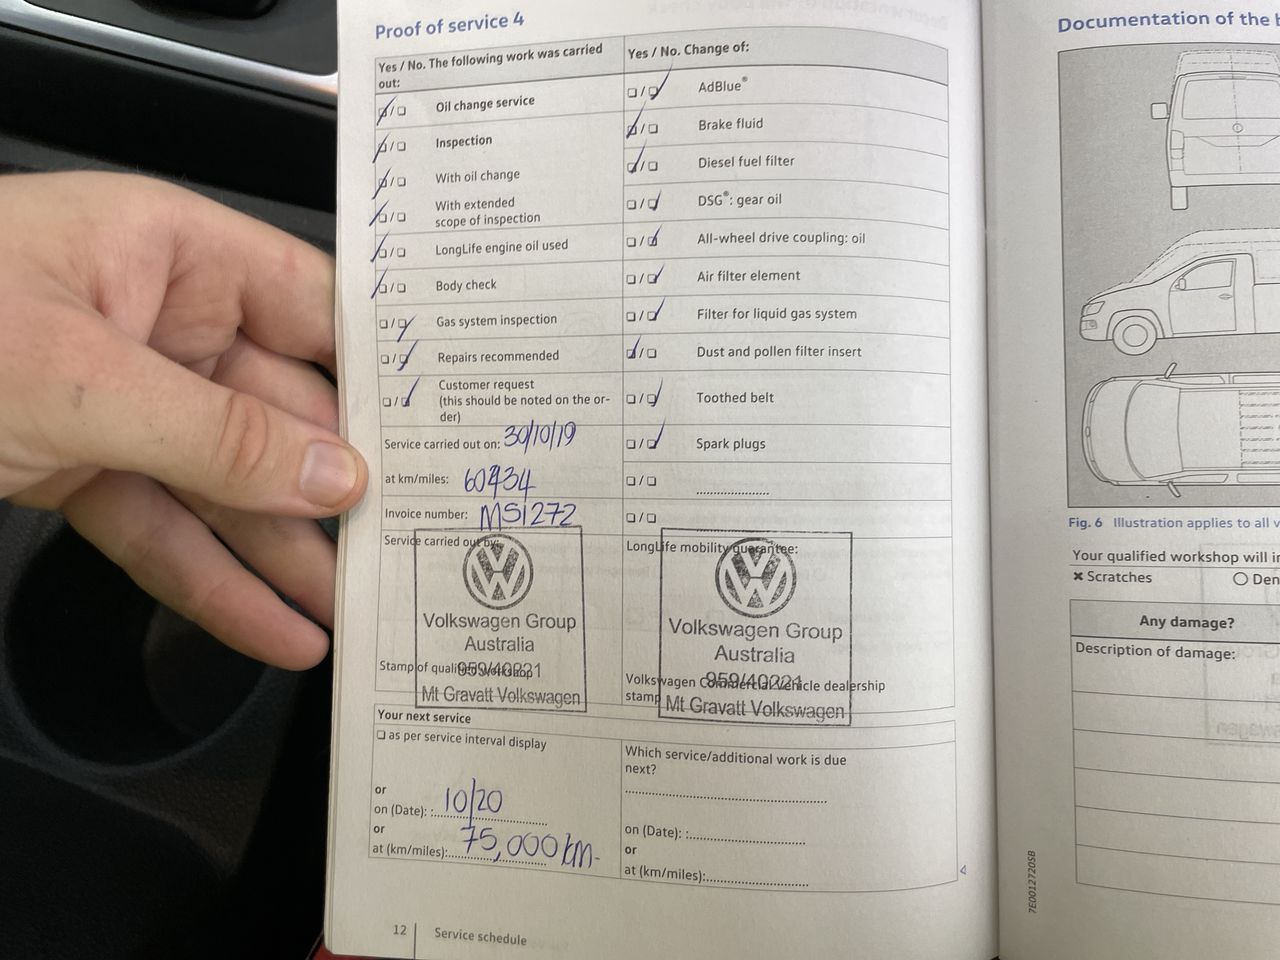 Proof of service 4
Yes / No. The following work was carried
out:
Oil change service
Inspection
With oil change
With extended
scope of inspection
LongLife engine oil used
Body check
Gas system inspection
Repairs recommended
Customer request
(this should be noted on the or-
der)
Service carried out on: 30/10/19
at km/miles: 60434
Invoice number: MS1272
Service carried out by:
Volkswagen Group
Australia
959/40221
Mt Gravatt Volkswagen
Stamp of qualified workshop
Yes / No. Change of:
AdBlue®
Brake fluid
Diesel fuel filter
DSG®: gear oil
All-wheel drive coupling: oil
Air filter element
Filter for liquid gas system
Dust and pollen filter insert
Toothed belt
Spark plugs
LongLife mobility guarantee:
Volkswagen Group
Australia
959/40221
Mt Gravatt Volkswagen
Volkswagen Commercial Vehicle dealership
stamp
Your next service
as per service interval display
or
on (Date): : 10/20
or
at (km/miles): 75,000 km-
Which service/additional work is due
next?
on (Date): :
or
at (km/miles):
12 Service schedule
Documentation of the
Fig. 6 Illustration applies to all
Your qualified workshop will
Scratches
Any damage?
Description of damage:
7E0012720SB